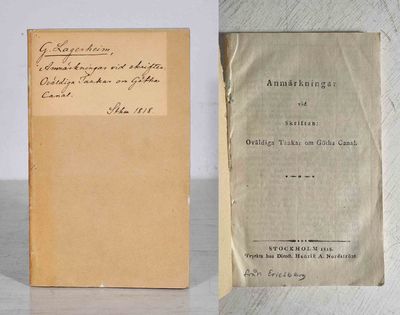 G. Lagerheim,
Anmärkningar vid skriften
Oväldiga Tankar om Götha
Canal.
Sthm 1818.
Anmärkningar
vid
Skriften:
Oväldiga Tankar om Götha Canal.
STOCKHOLM 1818.
Tryckta hos Direct. Henrik A. Nordström.
från Ericsberg